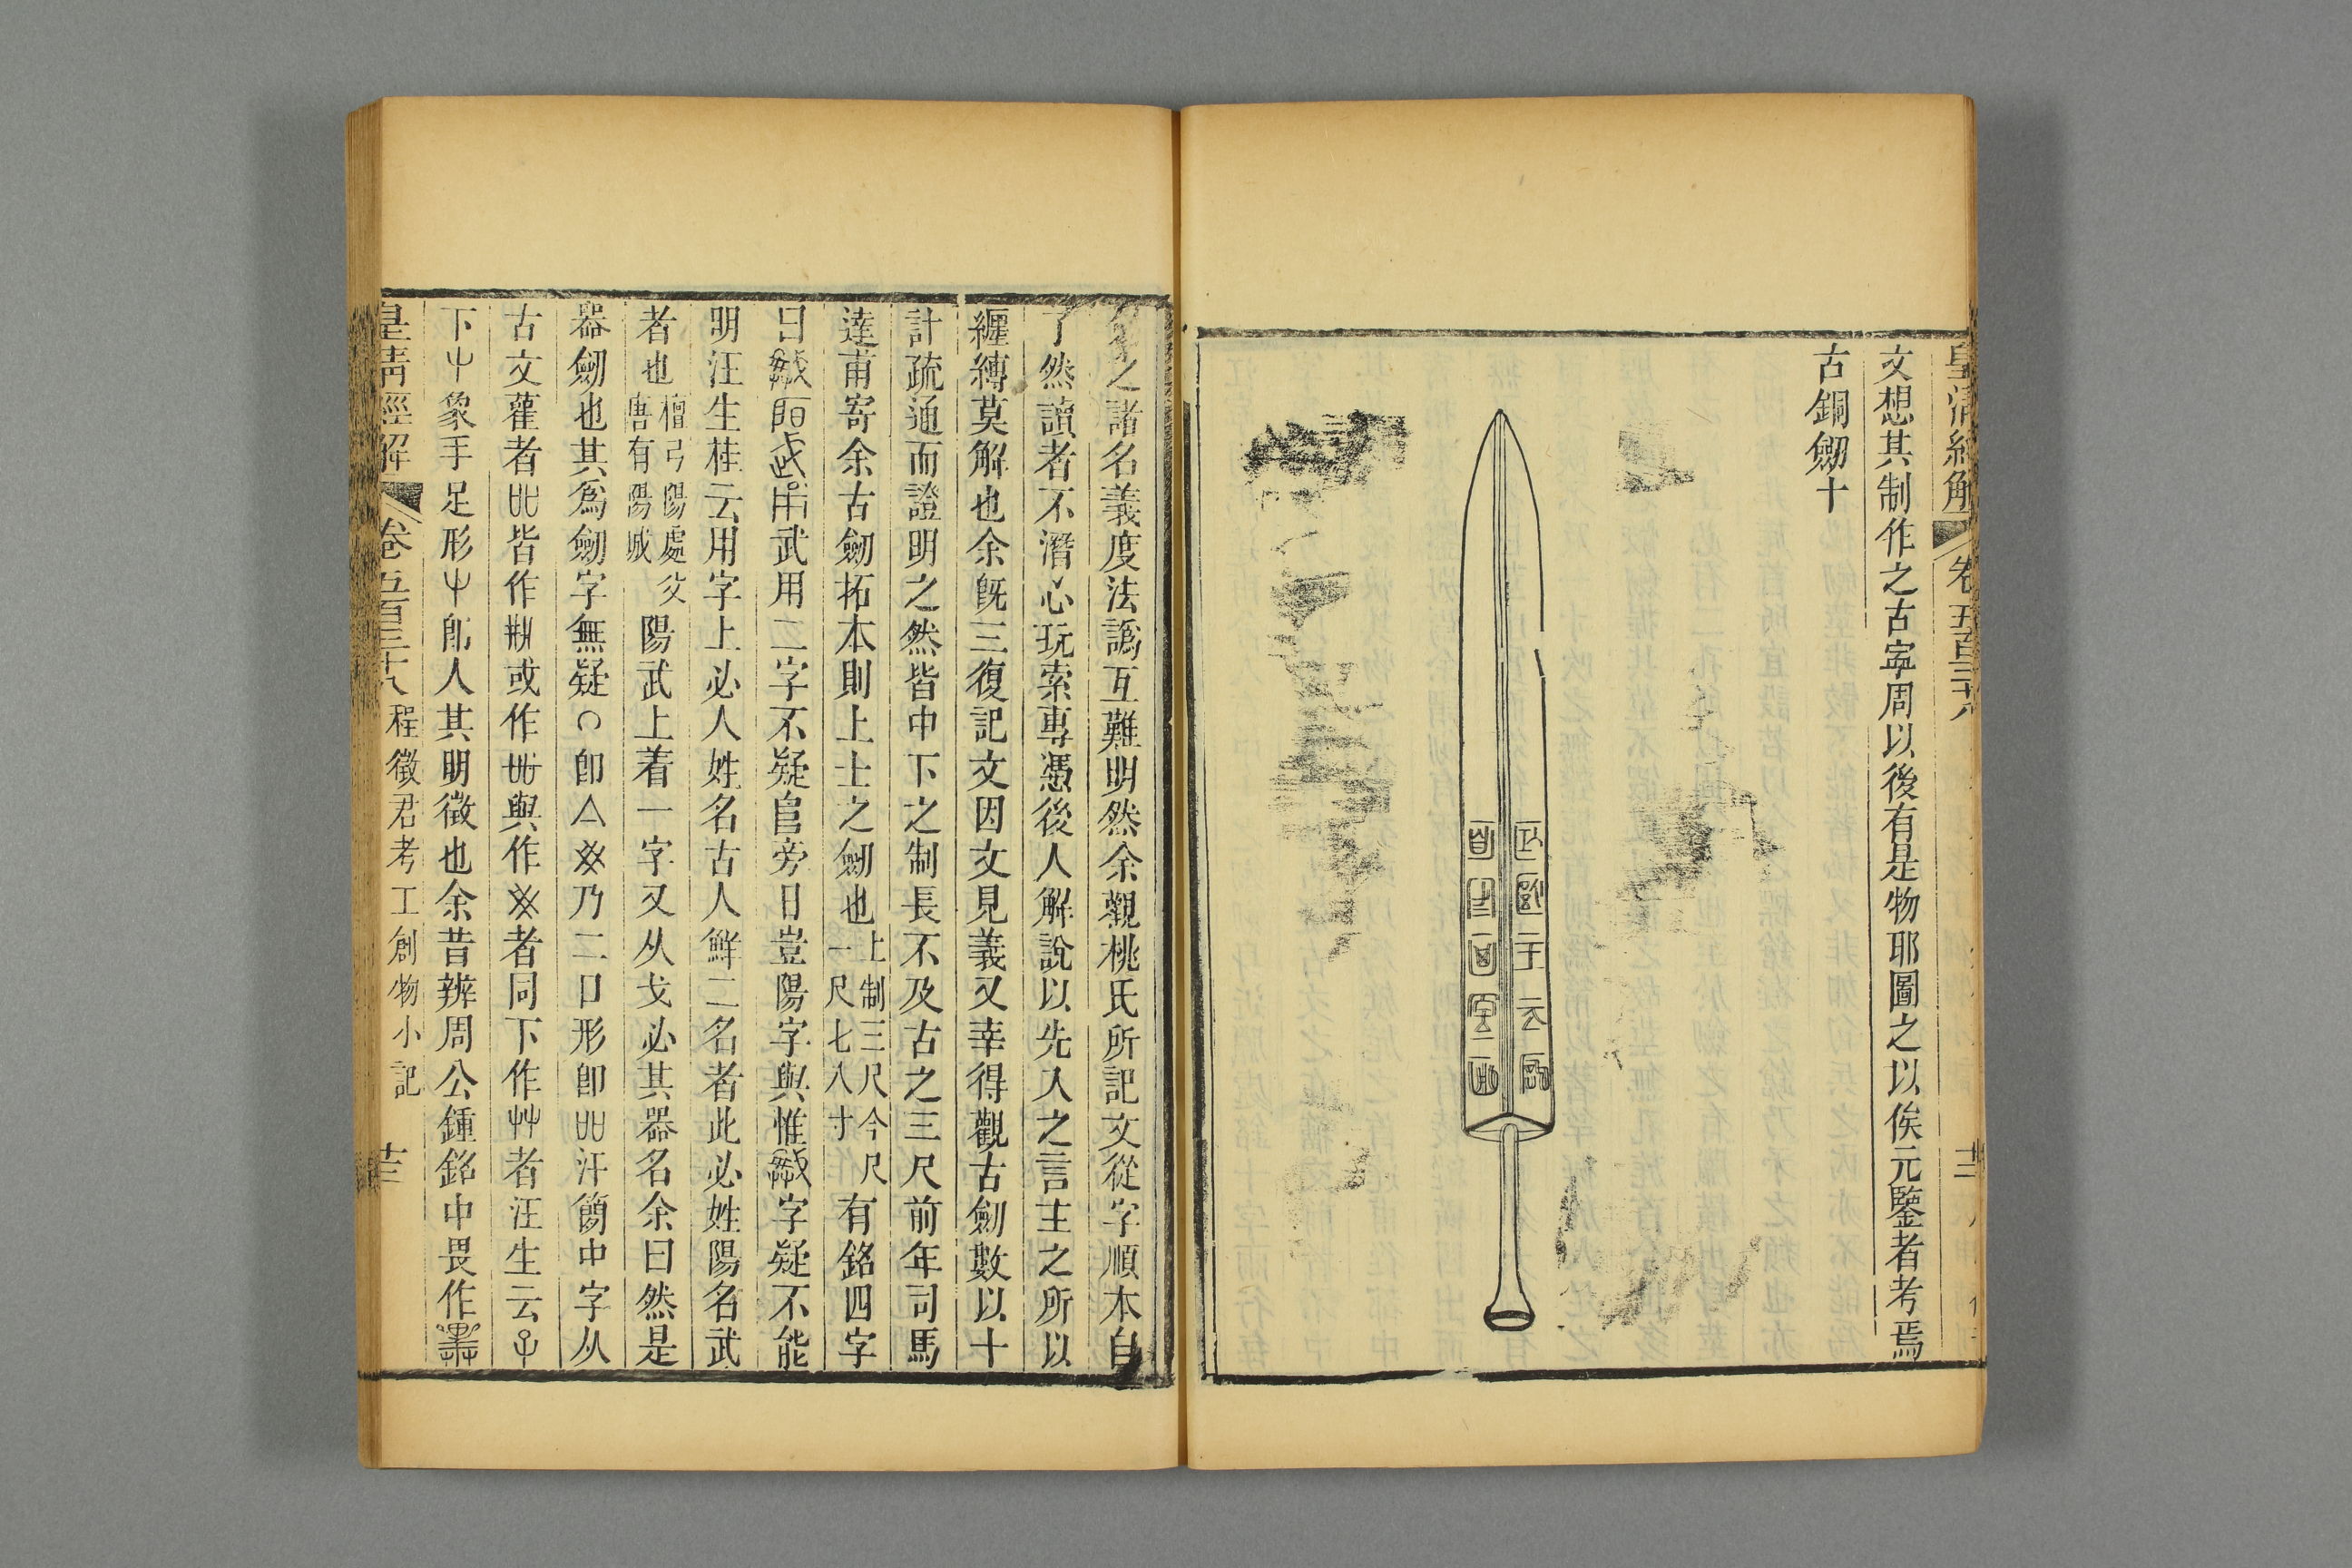 皇清經解 卷五百三十八
文想其制作之古寜周以後有是物耶圖之以俟元鑒者考焉
古銅劒十
之諸名義度法譌互難明然余觀桃氏所記文從字順本自
了然讀者不潛心玩索專憑後人解說以先入之言主之所以
纏縳莫解也余旣三復記文因文見義又幸得觀古劒數以十
計疏通而證明之然皆中下之制長不及古之三尺前年司馬
達甫寄余古劒拓本則上士之劒也上制三尺今尺一尺七八寸有銘四字
曰武用二字不疑旁日豈陽字與惟字疑不能
明汪生桂云用字上必人姓名古人鮮二名者此必姓陽名武
者也檀弓陽處父唐有陽城陽武上着一字又从戈必其器名余曰然是
器劒也其爲劒字無疑卽亼乃二口形卽吅汗簡中字从
古文雚者吅皆作或作與作者同下作艸者汪生云
下象手足形卽人其明徵也余昔辨周公鍾銘中畏作
皇清經解 卷五百三十八 程徵君考工創物小記 十三